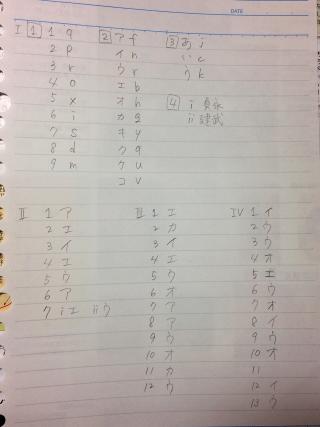 DATE
I 1 1 q 2 ア f 3 あ i
2 p イ n い c
3 r ウ r う k
4 o エ b
5 x オ h 4 i 貞永
6 i カ g ii 建武
7 s キ y
8 d ク q
9 m ケ u
コ v
II 1 ア III 1 エ IV 1 イ
2 エ 2 カ 2 ウ
3 イ 3 イ 3 ウ
4 エ 4 エ 4 オ
5 ウ 5 ウ 5 エ
6 ア 6 オ 6 ウ
7 i エ ii ウ 7 ア 7 オ
8 ア 8 イ
9 ウ 9 ウ
10 オ 10 オ
11 カ 11
12 ウ 12 イ
13 ウ